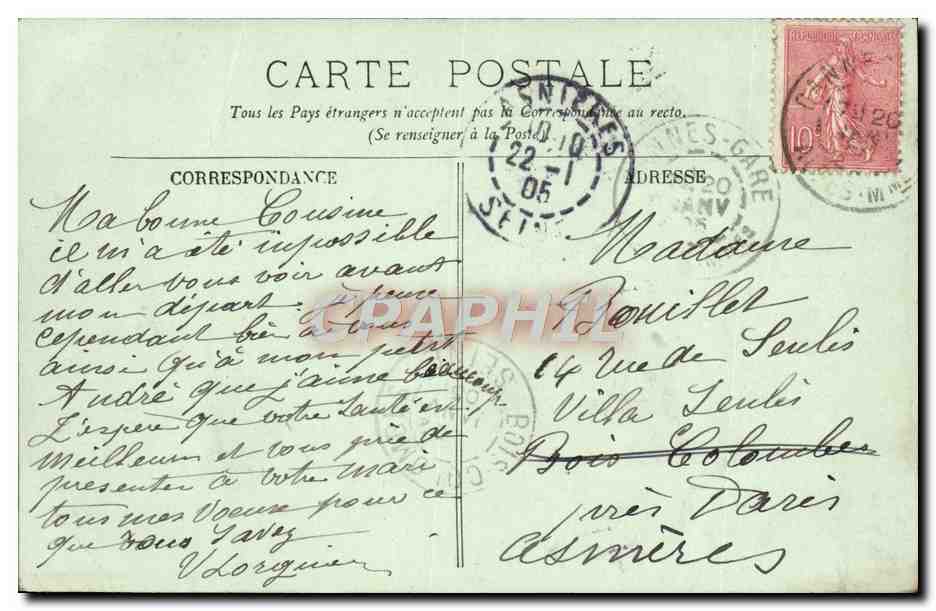 CARTE POSTALE
Tous les Pays étrangers n'acceptent pas la Correspondance au recto.
(Se renseigner à la Poste)
CORRESPONDANCE
Ma bonne Cousine
il m'a été impossible
d'aller vous voir avant
mon départ. je pense
cependant bien à vous
ainsi qu'à mon petit
André que j'aime beaucoup
J'espère que votre Santé est
meilleure et vous prie de
presenter à votre mari
tous mes Voeux pour ce
que vous Savez
ADRESSE
Madame
Bouillet
14 Rue de Senlis
Villa Senlis
Bois Colombes
près Paris
Asnières
REPUBLIQUE FRANÇAISE
10
ASNIERES
22 -1
05
SEINE
NNES-GARE
20
JANV
BOIS-COLOM
SEI
CPAPHIL